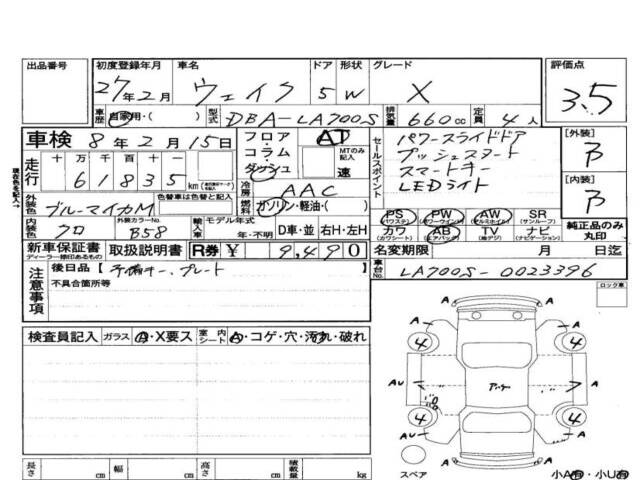 出品番号 初度登録年月 車名 ドア 形状 グレード 評価点
27年2月 ウェイク 5 W X 3.5
車歴 自家用・( ) 型式 DBA-LA700S 排気量 660cc 定員 4人
車検 8年2月15日 フロア・コラム・ダッシュ AT MTのみ記入 速 セールスポイント パワースライドドア
プッシュスタート
スマートキー
LEDライト
[外装] B
[内装] B
走行 十 万 千 百 十 一
61835 km
現在色を記入→
冷房 AAC
外装色 ブルーマイカM 色替車は色替と記入 燃料 ガソリン・軽油・( )
PS (パワステ) PW (パワーウインド) AW (アルミホイル) SR (サンルーフ)
カワ (カワシート) AB (エアバック) TV (地デジ) ナビ (ナビゲーション)
純正品のみ丸印
内装色 クロ 外装カラーNo. B58 輸入車 モデル年式 年・不明 D車・並 右H・左H
新車保証書 ディーラー様印あるもの 取扱説明書 R券 ¥ 9,490 名変期限 月 日迄
注意事項 後日品 予備キー、プレート
不具合箇所等
車台No. LA700S-0023396
ロック車
検査員記入 ガラス A・X要ス 室内シート A・コゲ・穴・汚れ・破れ
A 4 4 A
AU A
4 4
AU A
A A
スペア 小A有・小U有
長さ cm 幅 cm 高さ cm 積載量 kg